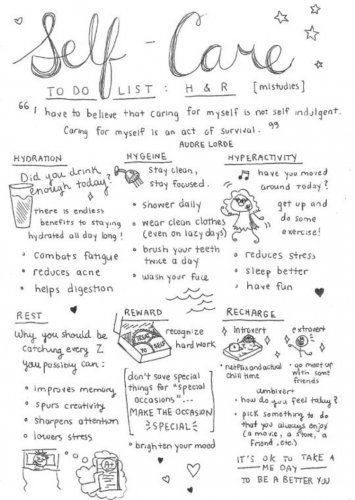 Self-Care
TO DO LIST: H & R [mistudies]
“ I have to believe that caring for myself is not self indulgent.
Caring for myself is an act of survival. ”
AUDRE LORDE
HYDRATION
Did you drink
enough today?
there is endless
benefits to staying
hydrated all day long!
• combats fatigue
• reduces acne
• helps digestion
HYGEINE
stay clean,
stay focused.
• shower daily
• wear clean clothes
(even on lazy days)
• brush your teeth
twice a day
• wash your face
HYPERACTIVITY
have you moved
around today?
get up and
do some
exercise!
• reduces stress
• sleep better
• have fun
REST
Why you should be
catching every Z
you possibly can:
• improves memory
• spurs creativity
• sharpens attention
• lowers stress
A+
REWARD
recognize
hard work
TREAT
YO SELF
don't save special
things for "special
occasions"...
MAKE THE OCCASION
SPECIAL
• brighten your mood
RECHARGE
introvert
• netflix and actual
chill time
extrovert
• go meet up
with some
friends
ambivert
• how do you feel today?
• pick something to do
that you always enjoy
(a movie, a store, a
friend, etc.)
IT'S OK TO TAKE A
ME DAY
TO BE A BETTER YOU